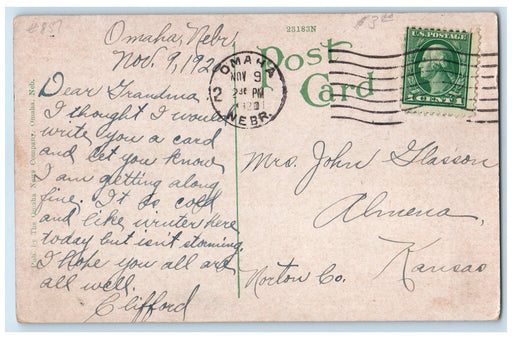 23183N
$3.00
Omaha, Nebr
Nov. 9, 192
Post
Card
OMAHA
NOV 9
PM
2
NEBR.
U.S. POSTAGE
1 CENT 1
Dear Grandma,
I thought I would
write you a card
and let you know
I am getting along
fine. It is cold
and like winter here
today but isn't storming.
I hope you all are
all well.
Clifford
Mrs. John Glasson
Almena,
Kansas
Norton Co.
Pub. by The Omaha News Company, Omaha, Neb.